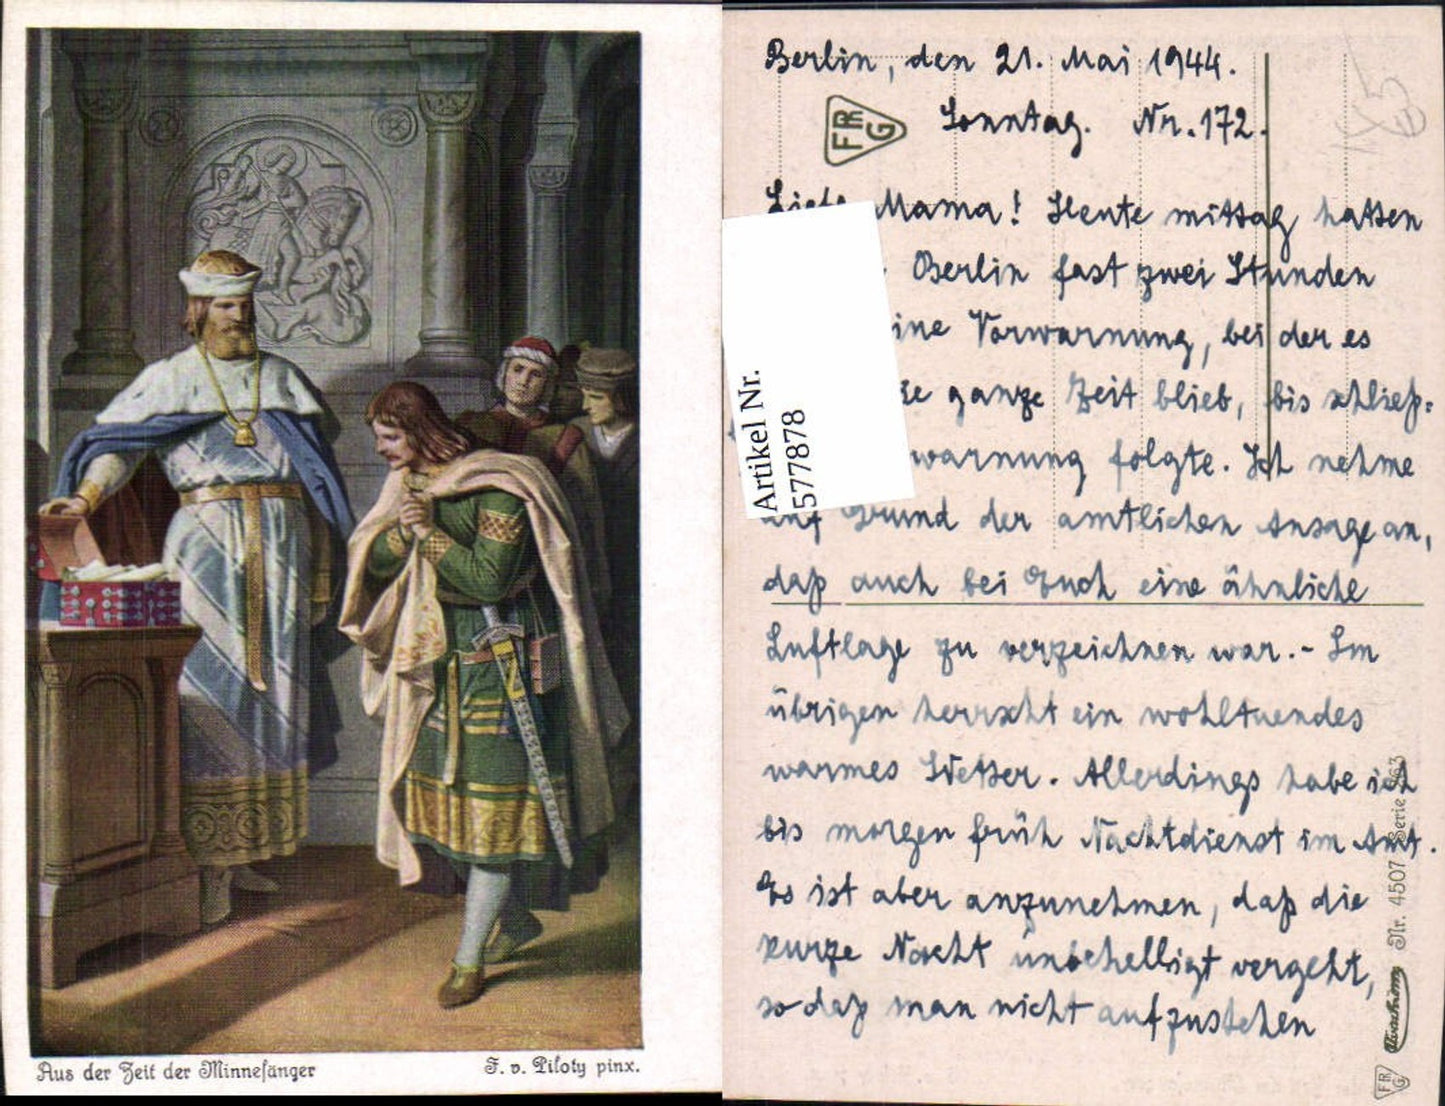 Aus der Zeit der Minnesänger
F. v. Piloty pinx.
Berlin, den 21. Mai 1944.
Sonntag. Nr. 172.
FRG
Liebe Mama! Heute mittag hatten
Berlin fast zwei Stunden
ine Vorwarnung, bei der es
ie ganze Zeit blieb, bis schließ-
warnung folgte. Ich nehme
auf Grund der amtlichen Ansage an,
daß auch bei Euch eine ähnliche
Luftlage zu verzeichnen war.- Im
übrigen herrscht ein wohltuendes
warmes Wetter. Allerdings habe ich
bis morgen früh Nachtdienst im Amt.
Es ist aber anzunehmen, daß die
kurze Nacht unbehelligt vergeht,
so daß man nicht aufzustehen
Artikel Nr.
577878
Nr. 4507 Serie 963
FRG